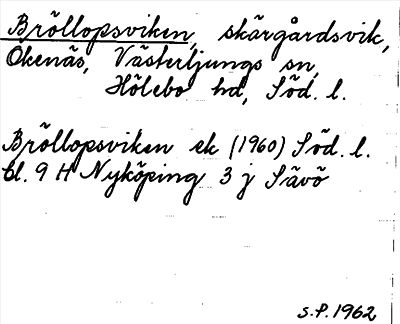 Bröllopsviken, skärgårdsvik,
Okenäs, Västerljungs sn,
Hölebo hd, Söd. l.
Bröllopsviken ek (1960) Söd. l.
bl. 9 H Nyköping 3 j Sävö
S.P. 1962